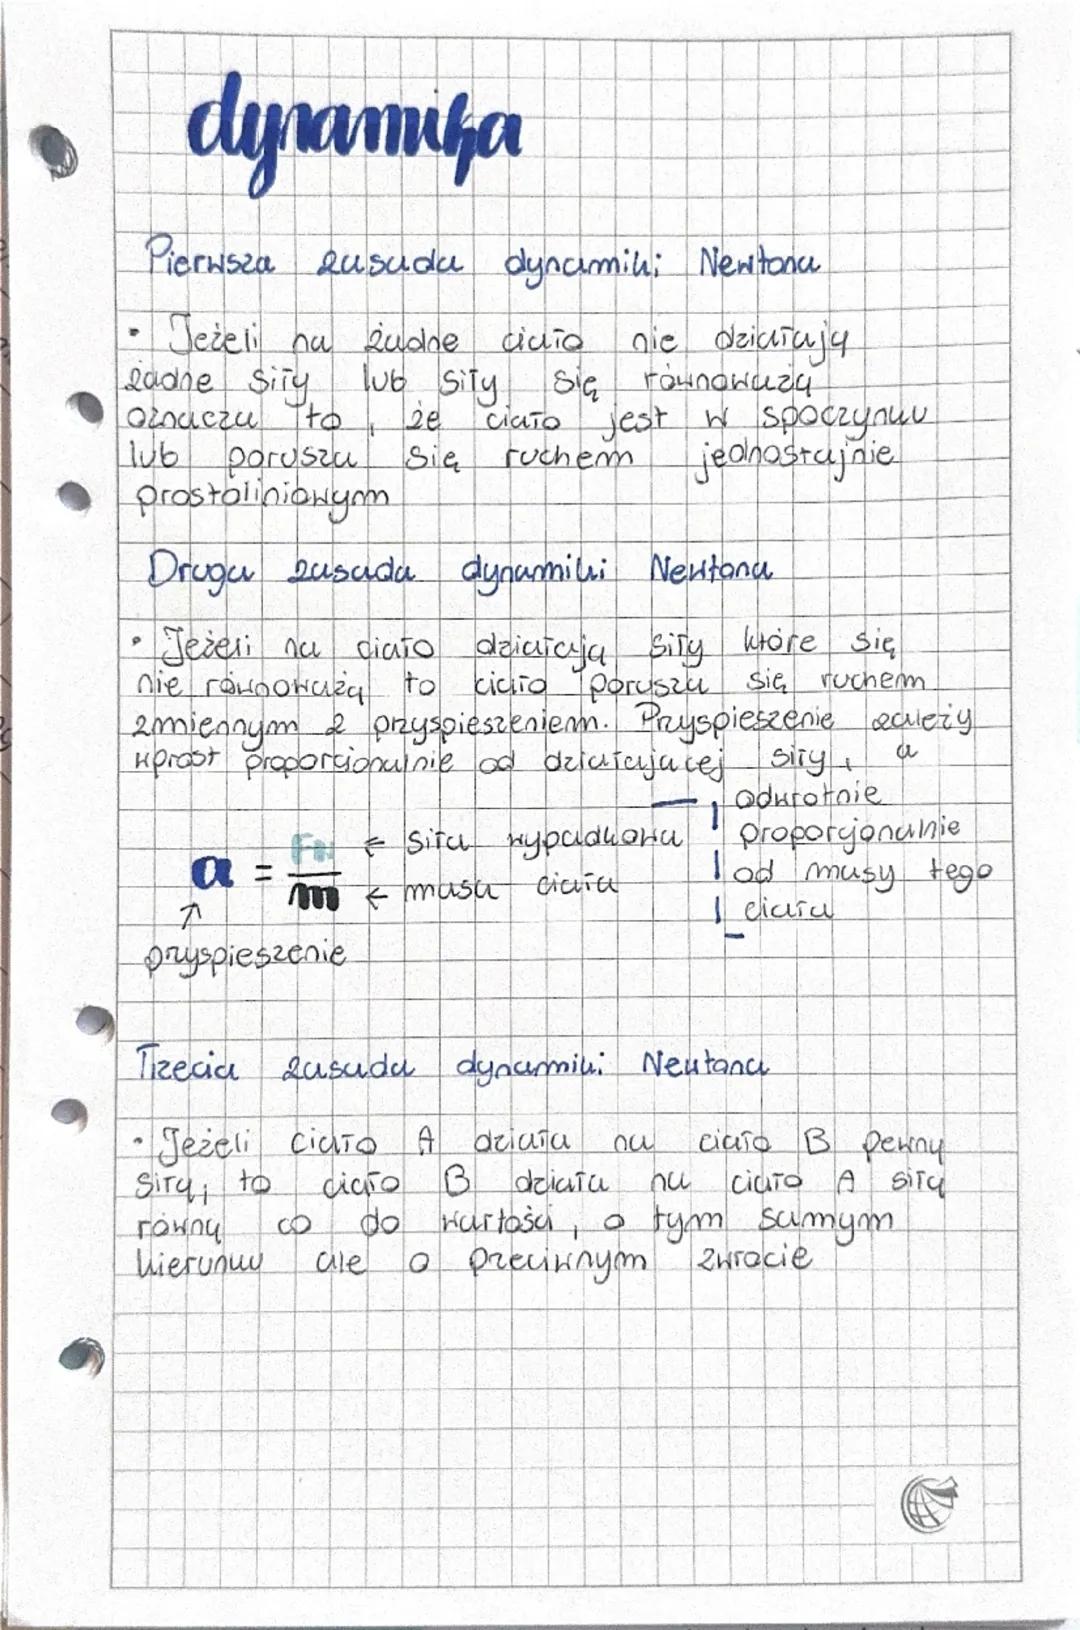 dynamika
Pierwsza zasada dynamiki Newtona
• Jeżeli na żadne ciało nie działają
żadne siły lub siły się równoważą
oznacza to, że ciało jest w spoczynku
lub porusza się ruchem jednostajnie
prostoliniowym
Druga zasada dynamiki Newtona
• Jeżeli na ciało działają siły które się
nie równoważą to ciało porusza się ruchem
zmiennym z przyspieszeniem. Przyspieszenie zależy
wprost proporcionalnie od działającej siły, a
odwrotnie
proporcjonalnie
od masy tego
ciała
a = Fw ← siła wypadkowa
m ← masa ciała
↑
przyspieszenie
Trzecia zasada dynamiki Newtona
• Jeżeli ciało A działa na ciało B pewną
siłą, to ciało B działa na ciało A siłą
równą co do wartości, o tym samym
kierunku ale o przeciwnym zwrocie